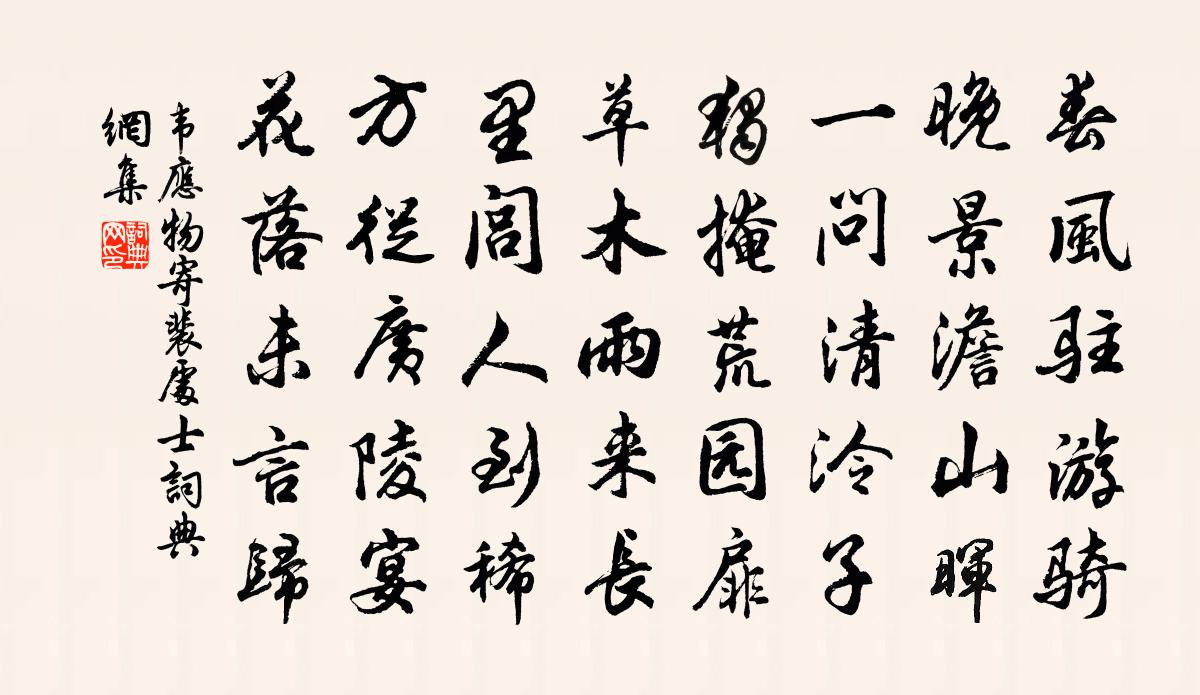 春風驻游骑
晚景澹山暉
一问清泠子
獨掩荒园扉
草木雨来長
里閭人到稀
方從廣陵宴
花落未言歸
韦應物寄裴處士詞典
網集
詞典
网印